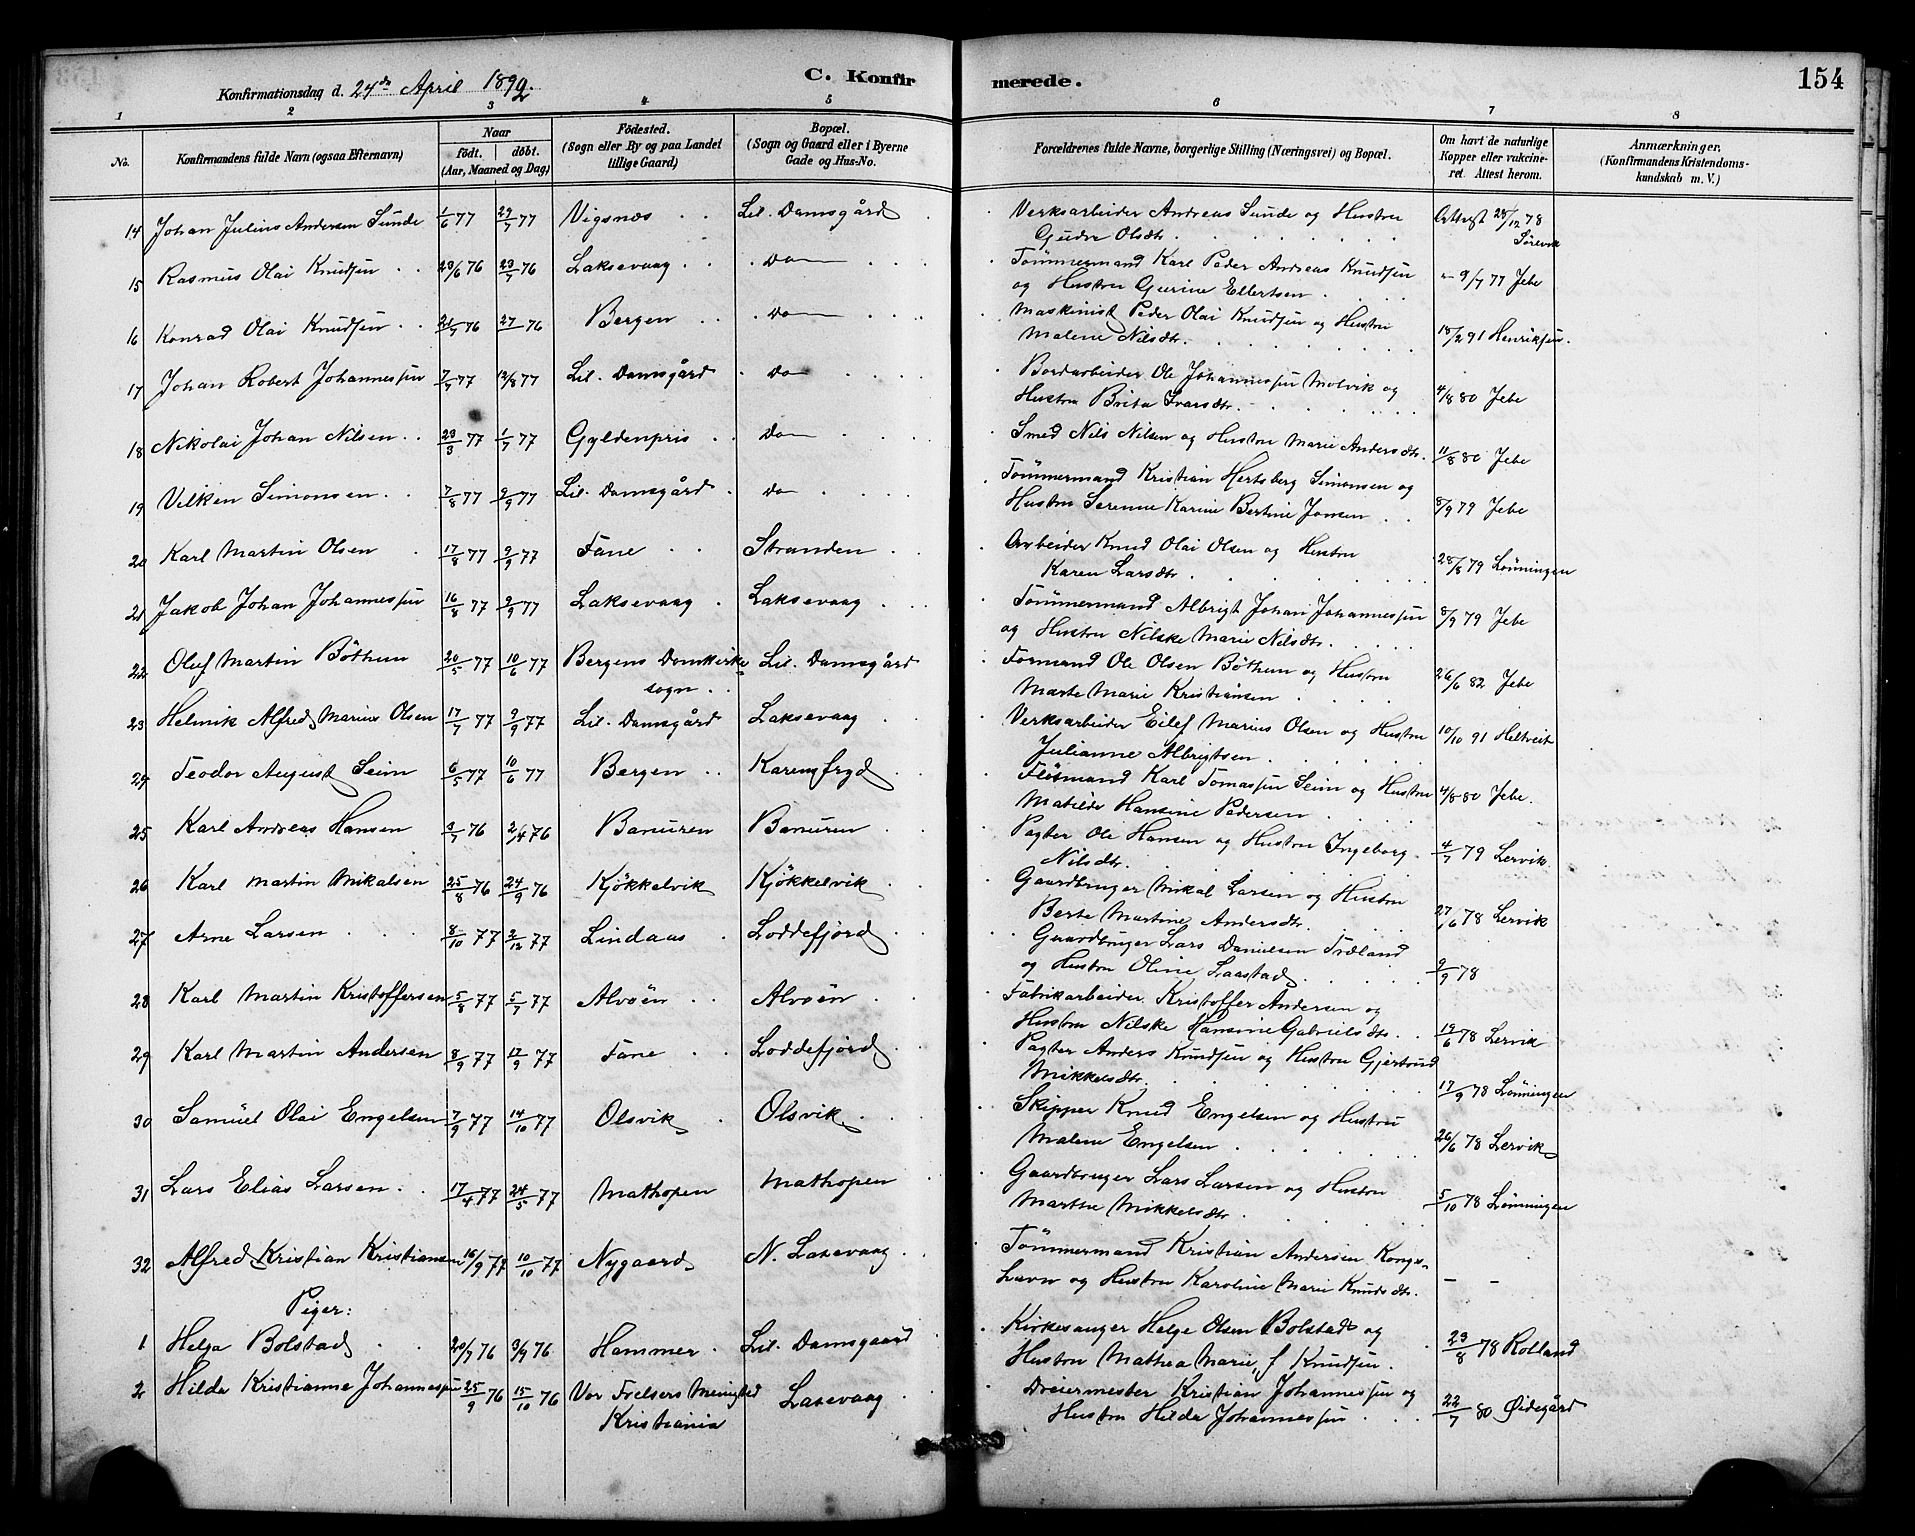 Konfirmationsdag d. 24de April 1892.
C. Konfirmerede.
154
1 2 3 4 5 6 7 8
No. Konfirmandens fulde Navn (ogsaa Efternavn) Naar født. døbt. (Aar, Maaned og Dag) Fødested. (Sogn eller By og paa Landet tillige Gaard) Bopæl. (Sogn og Gaard eller i Byerne Gade og Hus-No. Forældrenes fulde Navne, borgerlige Stilling (Næringsvei) og Bopæl. Om havt de naturlige Kopper eller vakcineret. Attest herom. Anmærkninger. (Konfirmandens Kristendomskundskab m. V.)
14 Johan Julius Andersen Sunde 1/6 77 29/7 77 Vigsnæs Lil. Damsgård Verksarbeider Andreas Sunde og Hustru Attest 28/12 78
Olsdtr.
15 Rasmus Olai Knudsen 23/6 76 23/7 76 Laksevaag Do Tømmermand Karl Peder Andreas Knudsen 9/7 77 Jebe
og Hustru Gurine Ellertsen
16 Konrad Olai Knudsen 76 76 Bergen Do Maskinist Peder Olai Knudsen og Hustru
Malene Nilsdtr. 18/2 91 Henriksen.
17 Johan Robert Johannessen 7/7 77 12/8 77 Lil. Damsgård Do Bordarbeider Ole Johannessen Molvik og
Hustru Brita Ivarsdtr. 4/8 80 Jebe
18 Nikolai Johan Nilsen 23/3 77 1/7 77 Gyldenpris Do Smed Nils Nilsen og Hustru Marie Andersdtr. 11/8 80 Jebe
19 Vilken Simonsen 7/8 77 9/9 77 Lil. Damsgård Do Tømmermand Kristian Hertsberg Simonsen og
Hustru Serenne Karine Bertine Jonsen 8/9 79 Jebe
20 Karl Martin Olsen 17/8 77 9/9 77 Fane Stranden Arbeider Knud Olai Olsen og Hustru
Karen Larsdtr. 28/8 79 Lønningen
21 Jakob Johan Johannessen 16/8 77 9/9 77 Laksevaag Laksevaag Tømmermand Albrigt Johan Johannessen 8/9 79 Jebe
og Hustru Nilske Marie Nilsdtr.
22 Oluf Martin Bøthun 20/5 77 10/6 77 Bergens Domkirke Lil. Damsgård Formand Ole Olsen Bøthun og Hustru
sogn Marte Marie Kristiansen 26/6 82 Jebe
23 Helmik Alfred Marius Olsen 17/7 77 9/9 77 Lil. Damsgård Laksevaag Verksarbeider Eilef Marius Olsen og Hustru 10/10 91 Heltveit
Julianne Albrigtsen
24 Teodor August Seim 6/5 77 10/6 77 Bergen Karensfryd Karl Tomassen Seim og Hustru 4/8 80 Jebe.
Matilde Hansine Pedersen
25 Karl Andreas Hansen 76 2/4 76 Banuren Banuren Pagter Ole Hansen og Hustru Ingeborg 4/7 79 Lervik
Nilsdtr.
26 Karl Martin Mikalsen 25/8 76 24/9 76 Kjøkkelvik Kjøkkelvik Gaardbruger Mikal Larsen og Hustru
Berte Martine Andersdtr. 27/6 78 Lervik
27 Arne Larsen 8/10 77 2/12 77 Lindaas Loddefjord Gaardbruger Lars Danielsen Træland
og Hustru Oline Saastad 9/9 78
28 Karl Martin Kristoffersen 5/8 77 5/7 77 Alvøen Alvøen Fabrikarbeider Kristoffer Andersen og
Hustru Nilske Hansine Gabrielsdtr. 19/6 78 Lervik
29 Karl Martin Andersen 8/9 77 17/9 77 Fane Loddefjord Pagter Anders Knudsen og Hustru Gjertrud
Mikkelsdtr. 17/9 78 Lønningen
30 Samuel Olai Engelsen 7/9 77 14/10 77 Olsvik Olsvik Skipper Knud Engelsen og Hustru
Malene Engelsen 26/6 78 Lervik
31 Lars Elias Larsen 17/4 77 24/5 77 Mathopen Mathopen Gaardbruger Lars Larsen og Hustru
Marthe Mikkelsdtr. 5/10 78 Lønningen
32 Alfred Kristian Kristiansen 16/9 77 10/10 77 Nygaard N. Laxevaag Tømmermand Kristian Andersen Kongshavn og Hustru Karoline Marie Knudsdtr. – –
Piger:
1 Helga Bolstad 20/7 76 3/9 76 Hammer Lil. Damsgaard Kirkesanger Helge Olsen Bolstad og
Hustru Mathea Marie f. Knudsen. 23/8 78 Rolland
2 Hilda Kristianne Johannessen 25/9 76 15/10 76 Vor Frelsers Menighed Laxevaag Dreiermester Kristian Johannessen og
Kristiania Hustru Hilda Johannessen 22/7 80 Ødegård